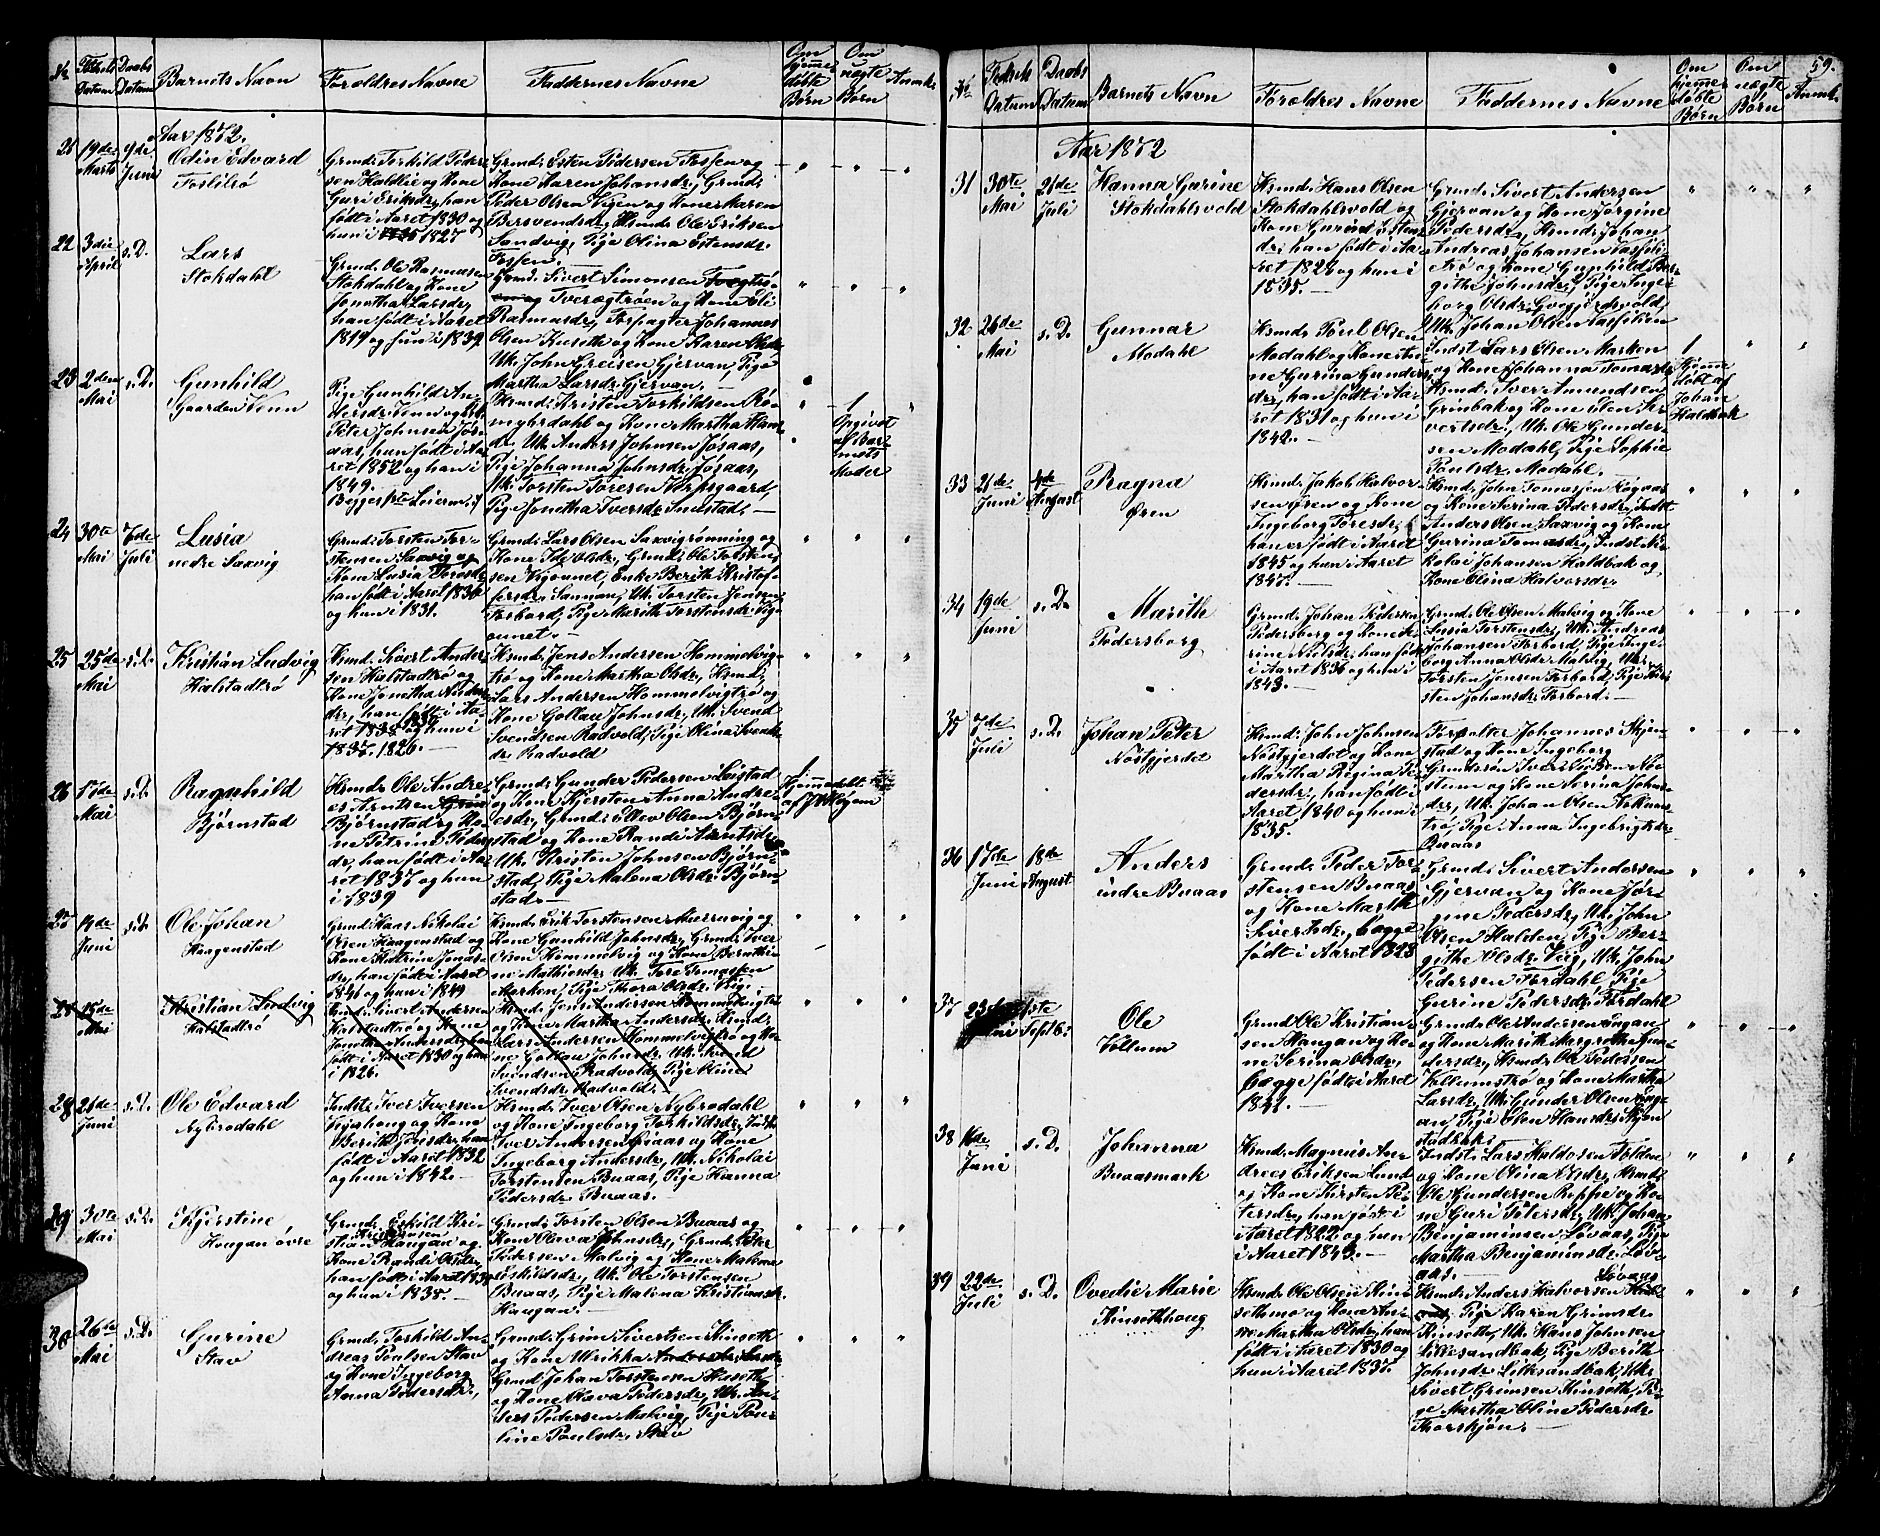 No
Fødsels Datum
Daabs Datum
Barnets Navn
Forældres Navne
Faddernes Navne
Om hjemmedøbte Børn
Om uægte Børn
Anmk.
Aar 1872.
21
19de Marts
9de Juni
Odin Edvard
Grmd: Torkild Peder-
sen Haldlie og Kone
Guri Eriksdr, han
født i Aaret 1830 og
hun i 1827
Grmd: Esten Pedersen Fossen og
Kone Karen Johansdr, Grmd:
Peder Olsen Vigen og Kone Maren
Bersvendsdr, Hsmd: Ole Eriksen
Sandvig, Pige Olina Estensdr
Fossen.
22
3die April
s. D.
Lars
Stokdahl
Grmd. Ole Rasmusen
Stokdahl og Kone
Jonetha Larsdr,
han født i Aaret
1819 og hun i 1839
Grmd. Sivert Simonsen
Tverægtrøen og Kone Eli
Rasmusdr, Forpagter Johannes
Olsen Kuseth og Kone Karen Olsdr
Uk. John Greisen Gjervan, Pige
Martha Larsdr Gjervan.
23
2den Mai
s. D.
Gunhild
Gaarden Venn
Pige Gunhild An-
dersdr Venn og Uk.
Peter Johnsen Jøs-
aas, han født i Aa-
ret 1852 og han i
1849.
Begges 1ste Leierm:
Hsmd: Kristen Torkildsen Rø-
myhrdahl og Kone Martha Hans-
dr, Uk. Anders Johnsen Jøsaas,
Pige Johanna Johnsdr, Jøsaas,
Uk. Torsten Toresen Torpsgaard,
Pige Jonetha Iversdr Indstad.
1
Opgivet
af Bar-
nets
Moder
24
30te Mai
7de Juli
Lusia
nedre Saxvig
Grmd: Torsten Tor-
stensen Saxvig og
Kone Lusia Toresdr
han født i Aaret 1830
og hun i 1831.
Grmd: Lars Olsen Saxvigrønning og
Kone Ide Olsdr, Grmd: Ole Torsten-
sen Vigounet, Enke Berith Kristof-
fersdr. Sannan, Uk. Torsten Jensen
Forbord, Pige Marith Torstensdr Vig-
ounet.
25
25de Mai
s. D.
Kristian Ludvig
Halstadtrø
Hsmd. Sivert Ander-
sen Halstadtrø og
Kone Jonetha Anders-
dr, han født i Aa-
ret og hun i
1826.
Hsmd. Jens Andersen Hommelvig-
trø og Kone Martha Olsdr, Hsmd.
Lars Andersen Hommelvigtrø og
Kone Gollau Johnsdr, Uk. Svend
Svendsen Radvold, Pige Olina Svends-
dr Radvold
26
5de Mai
s. D.
Ragnhild
Bjørnstad
Hsmd: Ole Andre-
es Arntsen
Bjørnstad og Ko-
ne Petrine Peders-
dr, han født i Aa-
ret 1837 og hun
i 1839
Grmd: Gunder Pedersen Leistad
og Kone Kjersten Anna Andre-
esdr, Grmd: Ellev Olsen Bjørn-
stad og Kone Randi Arntsdr
Uk. Kristen Johnsen Bjørn-
stad, Pige Malena Olsdr Bjørn-
stad.
1
Hjemmedøbt
af
27
14de Juni
s. D.
Ole Johan
Haagenstad
Grmd. Haas Nikolai
Olsen Haagenstad og
Kone Katrine Jonas-
dr, han født i Aaret
1846 og hun i 1849
Hsmd. Erik Torstensen Muruvig og
Kone Gunhild Johnsdr, Grmd: Iver
Olsen Hommelvig og Kone Bernthi-
ne Mathiasdr, Uk. Tore Tomassen
Marken, Pige Thora Olsdr Vig.
28
15de Mai
Kristian Ludvig
Halstadtrø
Hsmd: Sivert Andersen
Halstadtrø og Kone
Jonetha Andersdr, han
født i Aaret 1830 og hun
i 1826.
Hsmd. Jens Andersen Hommelvigtrø
og Kone Martha Andersdr, Hsmd:
Lars Andersen Hommelvigtrø og Ko-
ne Gollau Johnsdr, Uk. Svend
Svendsen Radvold, Pige Olina
Svendsdr Radvold.
28
21de Juni
s. D.
Ole Edvard
Nybrodahl
Indst: Iver Iversen
og Kone
Berith Jensdr, han
født i Aaret 1832
og hun i 1842.
Hsmd: Iver Olsen Nybrodahl
og Kone Ingeborg Torkildsdr, Indst
Iver Andersen Buaas og Kone
Ingeborg Andersdr, Uk. Nikolai
Torstensen Buaas, Pige Hanna
Pedersdr Buaas.
29
30te Mai
s. D.
Kjerstine
Hougan øvre
Grmd: Eskild Kri-
stiansen Haugan og
Kone Randi Olsdr,
han født i Aaret 183
og hun i 1838.
Grmd: Torsten Olsen Buaas og
Kone Olava Johnsdr, Grmd: Peter
Pedersen Malvig og Kone Malena
Eskildsdr, Uk. Ole Torstensen
Buaas, Pige Malena Kristiansdr
Haugan.
30
26de Mai
s. D.
Gurine
Stav
Grmd. Torkild An-
dreas Poulsen Stav
og Kone Ingeborg
Anna Pedersdr,
Grmd: Grim Sivertsen Kinseth
og Kone Ulrikka
Grmd Johan Torstensen
og Kone Olava Pedersdr, Uk. An-
ders Pedersen Malvig, Pige Paul-
line Poulsdr, Stav
59.
No
Fødsels Datum
Daabs Datum
Barnets Navn
Forældres Navne
Faddernes Navne
Om hjemmedøbte Børn
Om uægte Børn
Anmk.
Aar 1872
31
30te Mai
21de Juli
Hanna Gurine
Stokdahlsvold
Hsmd: Hans Olsen
Stokdahlsvold og
Kone Gurine Estens-
dr, han født i Aa-
ret 1829 og hun i
1835.
Grmd: Sivert Andersen
Gjervan og Kone Jørgine
Pedersdr, Hsmd: Johan
Andreas Johansen
trø og Kone Gunhild Bir-
githe Johnsdr, Pige Inge-
borg Olsdr Grøgjerdsvold,
Uk. Johan Olsen
32
26de Mai
s. D.
Gunnar
Modahl
Hsmd: Poul Olsen
Modahl og Kone
Gurina Gunders-
dr, han født i Aa-
ret 1831 og hun i
1842.
Indst Lars Olsen Marken
og Kone Johanna Tomasdr
Hsmd: Iver Amundsen
Grønbak og Kone Elen Si-
vertsdr, Uk. Ole Gunder-
sen Modahl, Pige Sophie
Poulsdr Modahl.
1
Hjemme
døbt af
Johan
Haldbak
33
21de Juni
4de August
Ragna
Øren
Hsmd. Jakob Halvor-
sen Øren og Kone
Ingeborg Toresdr,
han er født i Aaret
1845 og hun i Aaret
1847.
Hsmd: John Tomassen
og Kone Serina Pedersdr, Indst
Anders Olsen Saxvig og Kone
Gurina Tomasdr, Indst Ni-
kolai Johansen Haldbak og
Kone Olina Halvorsdr.
34
19de Juni
s. D.
Marith
Pedersborg
Grmd: Johan Pedersen
Pedersborg og Kone Se-
rine Nielsdr, han født
i Aaret 1836 og hun i
1843.
Grmd: Ole Olsen Malvig og Kone
Lusia Torstensdr, Uk. Andreas
Johansen Forbord, Pige Inge-
borg Anna Olsdr Malvig, Uk.
Torsten Jensen Forbord, Pige Kjer-
sten Johansdr Forbord.
35
7de Juli
s. D.
Johan Peter
Nøstgjerdet
Hsmd: John Johnsen
Nøstgjerdet og Kone
Martha Regina Pe-
dersdr, han født i
Aaret 1840 og hun i
1835.
Forpakter Johannes Skjen-
stad og Kone Ingeborg
Grmdsøn Iver Nilsen Nøs-
tum og Kone Serina Johns-
dr, Uk. Johan Olsen
trø, Pige Anna Ingebrigtsdr
Buaas
36
17de Juni
18de August
Anders
indre Buaas
Grmd: Peder Tor-
stensen Buaas
og Kone Marith
Sivertsdr, begge
født i Aaret 1828
Grmd: Sivert Andersen
Gjervan og Kone Jør-
gine Pedersdr, Uk. John
Olsen Halden, Pige Ber-
githe Olsdr Vig, Uk. John
Pedersen Fordahl Pige
Gurine Pedersdr Fordahl
37
1ste Septbr
Ole
Vollum
Grmd Ole Kristian-
sen Haugan og Ko-
ne Serina Olsdr,
begge født i Aaret
1841.
Grmd: Ole Andersen Haugan
og Kone Marith Margrethe Gun-
dersdr, Hsmd: Ole Pedersen
Vollumstrø og Kone Martha
Larsdr, Uk. Gunder Olsen Haug-
an, Pige Olen Hansdr Skjen-
stadbak.
38
16de Juni
s. D.
Johanna
Buaasmark
Hsmd. Magnus An-
dreas Eriksen Lund
og Kone Kirsten Pe-
dersdr, han født i
Aaret 1822 og hun
i Aaret 1843.
Indst. Lars Haldosen Folden
og Kone Olina Olsdr, Hsmd:
Ole Gundersen Reppe og Ko-
ne Guri Petersdr, Uk. Johan
Benjaminsen Løvaas, Pige
Martha Benjaminsdr Løv-
aas.
39
22de Juli
s. D.
Ovedie Marie
Kinsethhoug
Hsmd: Ole Olsen Kin-
sethmo og Kone An-
ne Martha Olsdr, han
født i Aaret 1830 og
hun i Aaret 1837.
Løvaas
Hsmd: Anders Halvorsen
Pige Karen Grimsdr
Kinseth, Uk. Hans Johnsen
Lillesandbak, Pige Berith
Johnsdr Lillesandbak, Uk.
Sivert Grimsen Kinseth, Pi-
ge Martha Oline Pedersdr
Thorskjøn.